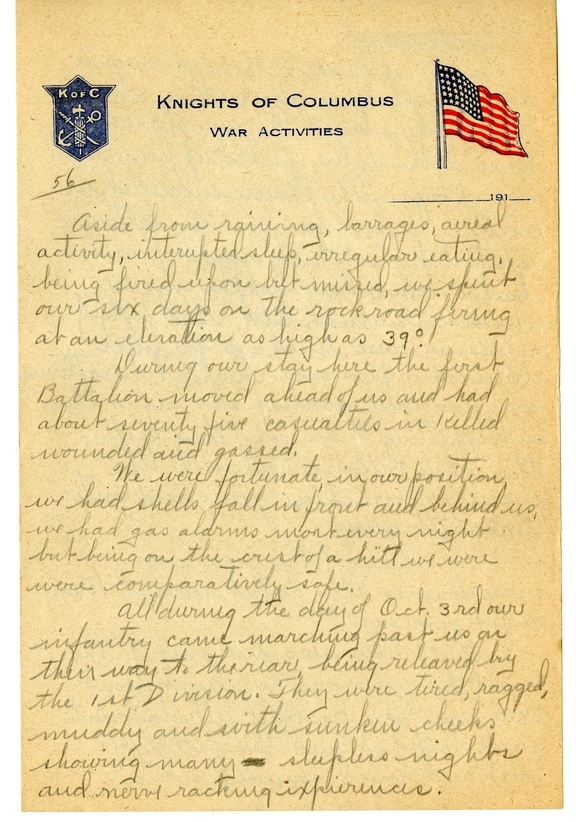 K OF C
KNIGHTS OF COLUMBUS
WAR ACTIVITIES
56
191
Aside from raining, barrages, aereal
activity, interupted sleep, irregular eating,
being fired upon but missed, we spent
our six days on the rock road firing
at an elevation as high as 39°.
During our stay here the first
Battalion moved ahead of us and had
about seventy five casualties in killed
wounded and gassed.
We were fortunate in our position,
we had shells fall in front and behind us,
we had gas alarms most every night
but being on the crest of a hill we were
were comparatively safe.
All during the day of Oct. 3rd our
infantry came marching past us on
their way to the rear, being releaved by
the 1st Division. They were tired, ragged,
muddy and with sunken cheeks
showing many slepless nights
and nerve racking expierences.